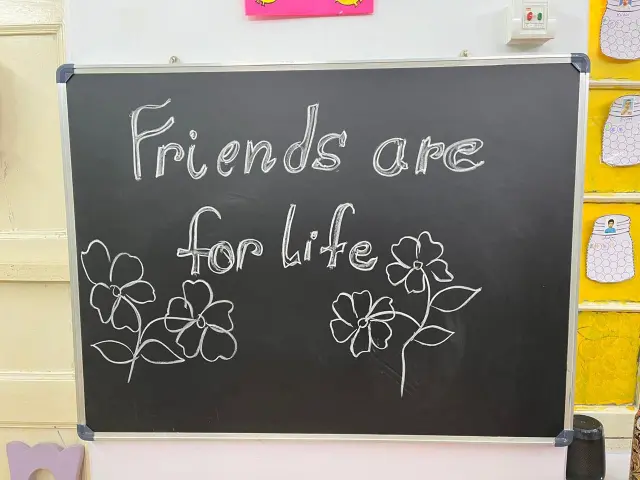 Friends are
for life